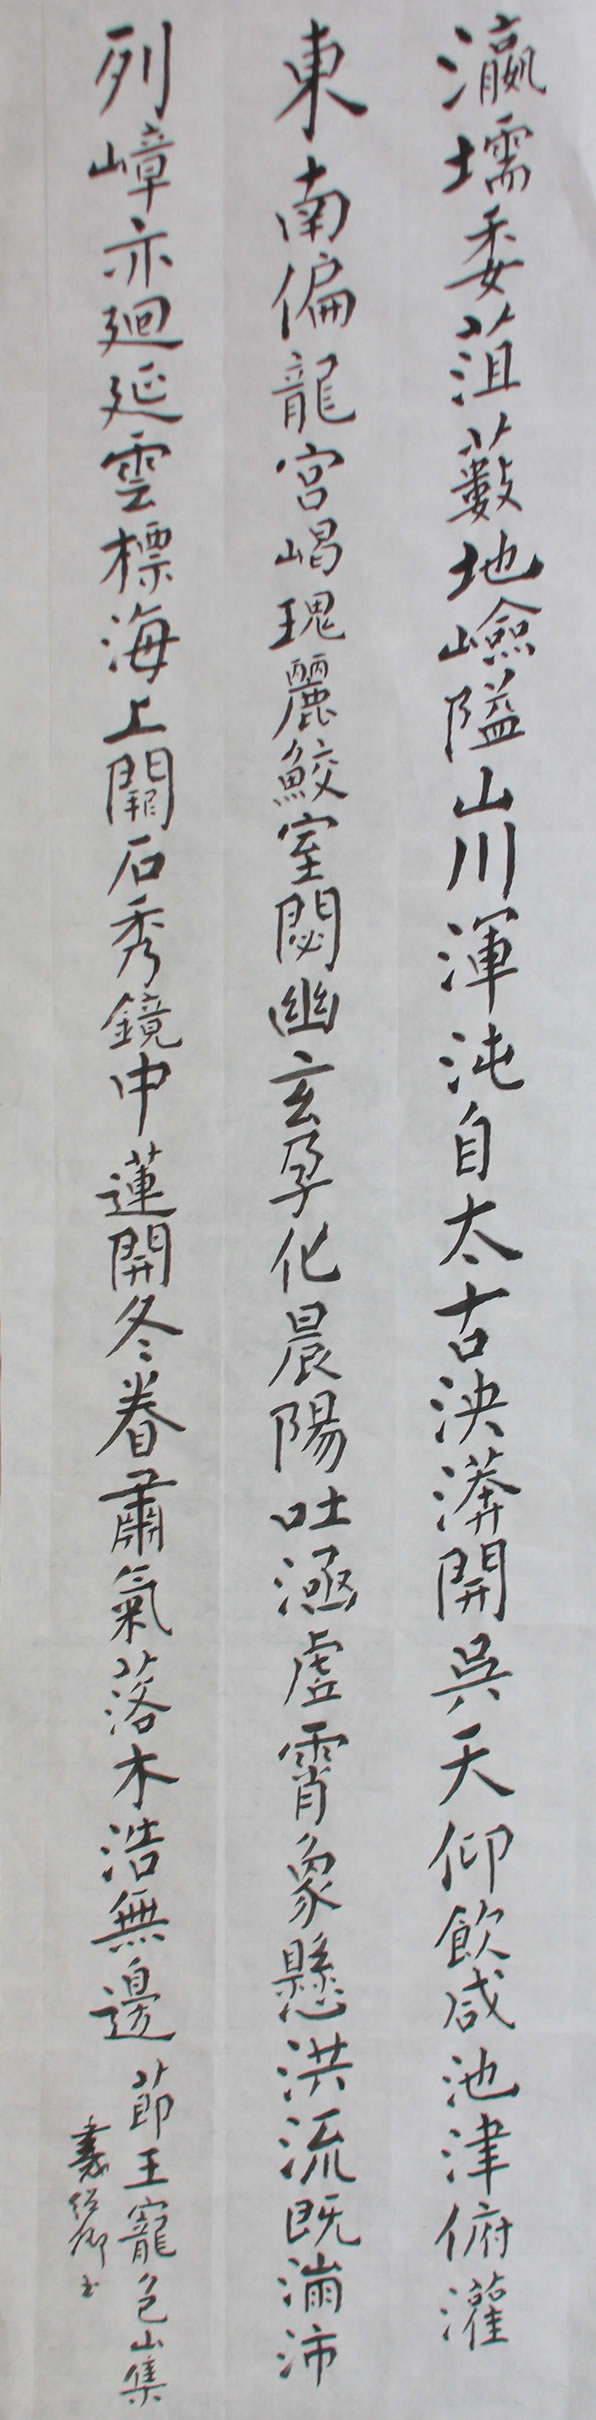 瀛壖委菹藪地嶮隘山川渾沌自太古泱漭開吳天仰飲咸池津俯灌
東南偏龍宮嵑瑰麗鮫室閟幽玄孕化晨陽吐涵虛霄象懸洪流既滿沛
列嶂亦廻延雲標海上闕石秀鏡中蓮開冬眷肅氣落木浩無邊
節王寵包山集